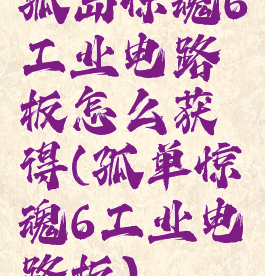 孤岛惊魂6
工业电路
板怎么获
得(孤单惊
魂6工业电
路板)